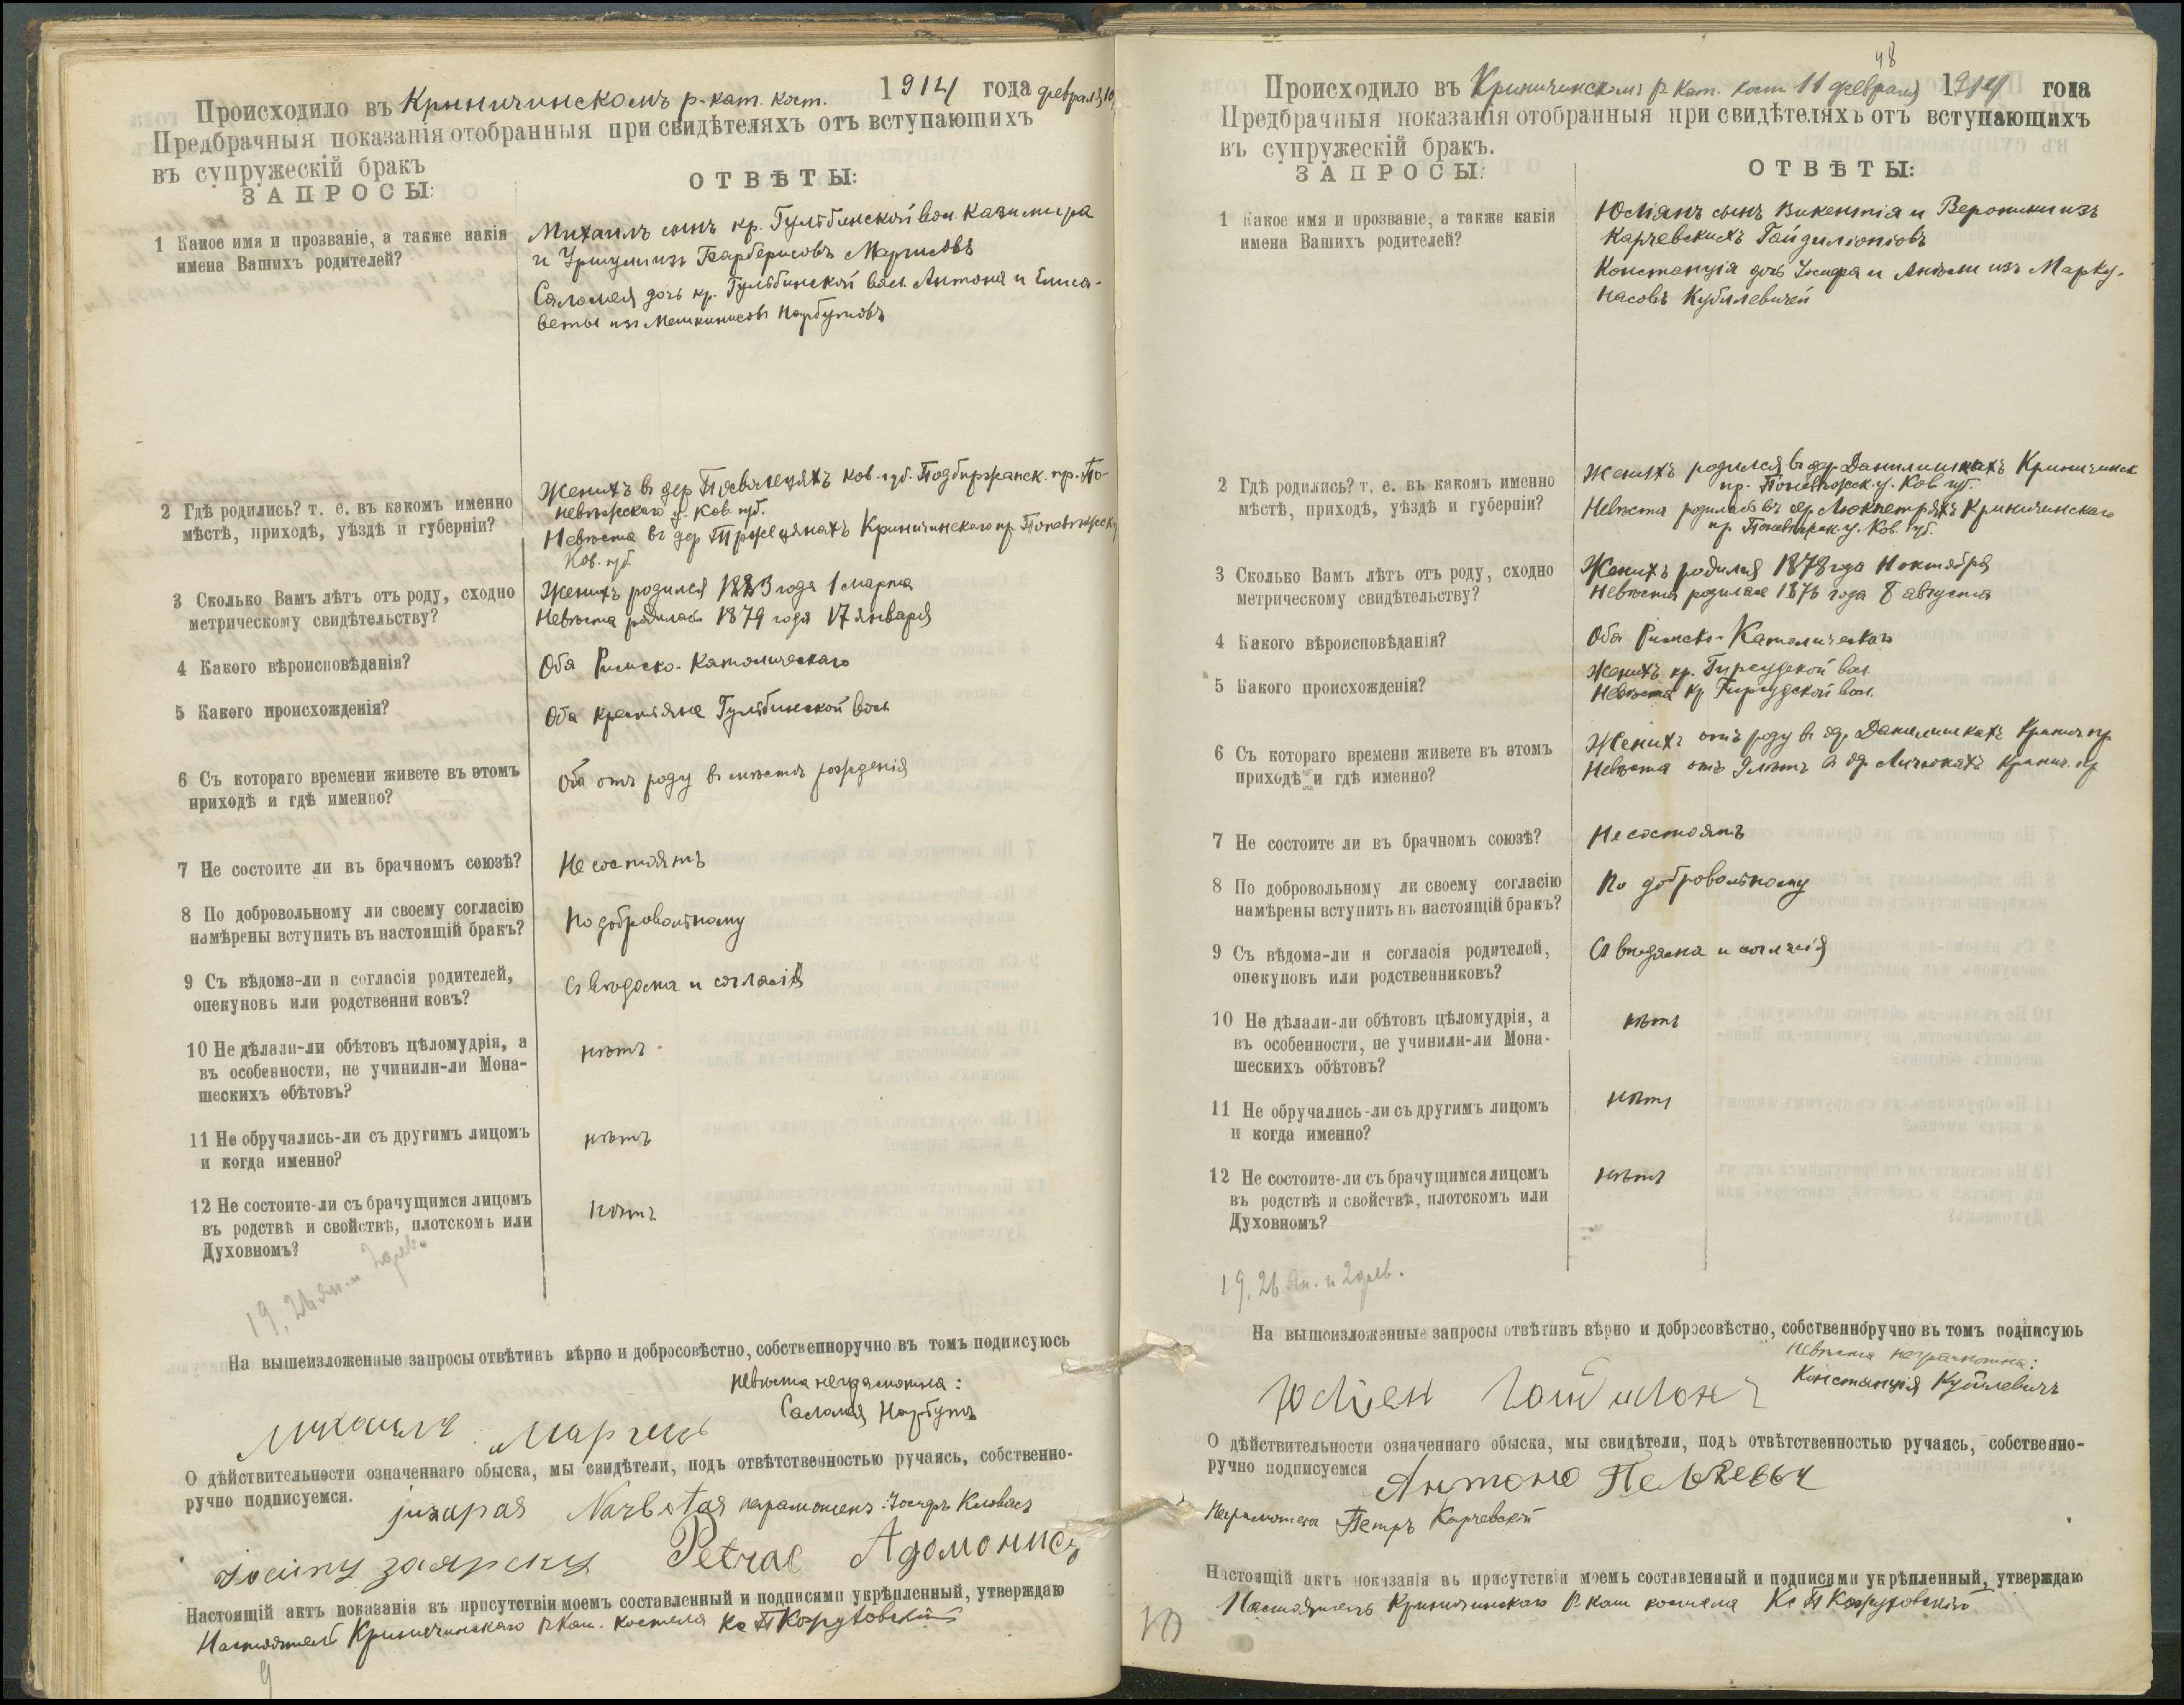 Происходило въ Криничинскомъ р-кат. кост. 1914 года февраля 10
Предбрачныя показанія отобранныя при свидѣтеляхъ отъ вступающихъ
въ супружескій бракъ
ЗАПРОСЫ:
ОТВѢТЫ:
1 Какое имя и прозваніе, а также какія
имена Вашихъ родителей?
Михаилъ сынъ кр. Гульбинской вол. Казимира
и Уршули изъ
Саломея дочь кр. Гульбинской вол. Антона и Елиса-
веты изъ Мешкинисовъ Нарбутовъ
2 Гдѣ родились? т. е. въ какомъ именно
мѣстѣ, приходѣ, уѣздѣ и губерніи?
Женихъ въ дер ков. губ. Подбиржанск. пр. По-
невѣжскаго у. Ков. губ.
Невѣста въ дер Криничинскаго пр. Поневѣжск у
Ков. губ
3 Сколько Вамъ лѣтъ отъ роду, сходно
метрическому свидѣтельству?
Женихъ родился 1883 года 1 марта
Невѣста родилась 1879 года 17 января
4 Какого вѣроисповѣданія?
Оба Римско-Католическаго
5 Какого происхожденія?
Оба крестьяне Гульбинской вол
6 Съ котораго времени живете въ этомъ
приходѣ и гдѣ именно?
Оба отъ роду въ мѣстѣ рожденія
7 Не состоите ли въ брачномъ союзѣ?
Не состоятъ
8 По добровольному ли своему согласію
намѣрены вступить въ настоящій бракъ?
По добровольному
9 Съ вѣдома-ли и согласія родителей,
опекуновъ или родственни ковъ?
Съ вѣдома и согласія
10 Не дѣлали-ли обѣтовъ цѣломудрія, а
въ особенности, не учинили-ли Мона-
шескихъ обѣтовъ?
нѣтъ
11 Не обручались-ли съ другимъ лицомъ
и когда именно?
нѣтъ
12 Не состоите-ли съ брачущимся лицомъ
въ родствѣ и свойствѣ, плотскомъ или
Духовномъ?
нѣтъ
19, 26 ян. и 2 фев.
На вышеизложенные запросы отвѣтивъ вѣрно и добросовѣстно, собственноручно въ томъ подписуюсь
невѣста неграмотна:
Саломея Нарбутъ
О дѣйствительности означеннаго обыска, мы свидѣтели, подъ отвѣтственностью ручаясь, собственно-
ручно подписуемся.
неграмотенъ: Іосифъ
Petras Адомонис
Настоящій актъ показанія въ присутствіи моемъ составленный и подписями укрѣпленный, утверждаю
Настоятель Криничинскаго р кат. костела Кс П
9
48
Происходило въ Криничинскомъ р кат. кост 11 февраля 1914 года
Предбрачныя показанія отобранныя при свидѣтеляхъ отъ вступающихъ
въ супружескій бракъ.
ЗАПРОСЫ:
ОТВѢТЫ:
1 Какое имя и прозваніе, а также какія
имена Вашихъ родителей?
Юліянъ сынъ Викентія и Вероники изъ
Карчевскихъ
Констанція дочь Іосифа и Анѣли изъ Марку-
насовъ Кубилевичей
2 Гдѣ родились? т. е. въ какомъ именно
мѣстѣ, приходѣ, уѣздѣ и губерніи?
Женихъ родился въ дер Данилишкахъ Криничинск
пр. Поневѣжск. у. Ков губ.
Невѣста родилась въ дер Криничинскаго
пр. Поневѣжск. у. Ков. губ.
3 Сколько Вамъ лѣтъ отъ роду, сходно
метрическому свидѣтельству?
Женихъ родился 1878 года октября
Невѣста родилась 1876 года 8 августа
4 Какого вѣроисповѣданія?
Оба Римско-Католическаго
5 Какого происхожденія?
Женихъ кр. Гирсудской вол
Невѣста кр Гирсудской вол.
6 Съ котораго времени живете въ этомъ
приходѣ и гдѣ именно?
Женихъ отъ роду въ др. Данилишкахъ Кринич пр
Невѣста отъ 9 лѣтъ въ др Кринич. пр
7 Не состоите ли въ брачномъ союзѣ?
Не состоятъ
8 По добровольному ли своему согласію
намѣрены вступить въ настоящій бракъ?
По добровольному
9 Съ вѣдома-ли и согласія родителей,
опекуновъ или родственниковъ?
Съ вѣдома и согласія
10 Не дѣлали-ли обѣтовъ цѣломудрія, а
въ особенности, не учинили-ли Мона-
шескихъ обѣтовъ?
нѣтъ
11 Не обручались-ли съ другимъ лицомъ
и когда именно?
нѣтъ
12 Не состоите-ли съ брачущимся лицомъ
въ родствѣ и свойствѣ, плотскомъ или
Духовномъ?
нѣтъ
19, 26 ян. и 2 фев.
На вышеизложенные запросы отвѣтивъ вѣрно и добросовѣстно, собственноручно въ томъ подписуюь
невѣста неграмотна:
Констанція Кубилевичъ
О дѣйствительности означеннаго обыска, мы свидѣтели, подъ отвѣтственностью ручаясь, собственно-
ручно подписуемся
Антоно
Неграмотенъ Петръ Карчевскій
Настоящій актъ показанія въ присутствіи моемъ составленный и подписями укрѣпленный, утверждаю
Настоятель Криничинскаго р кат костела Кс П
10